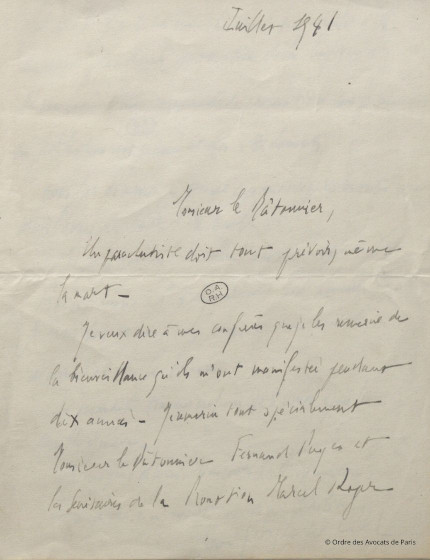 Juillet 1941
Monsieur le Bâtonnier,
Un parachutiste doit tout prévoir, même
la mort -
O.A.
RH
Je veux dire à mes confrères que je les remercie de
la bienveillance qu'ils m'ont manifestée pendant
dix années - Je remercie tout spécialement
Monsieur le Bâtonnier Fernand Payen et
les Secrétaires de la Promotion Marcel Roger
© Ordre des Avocats de Paris